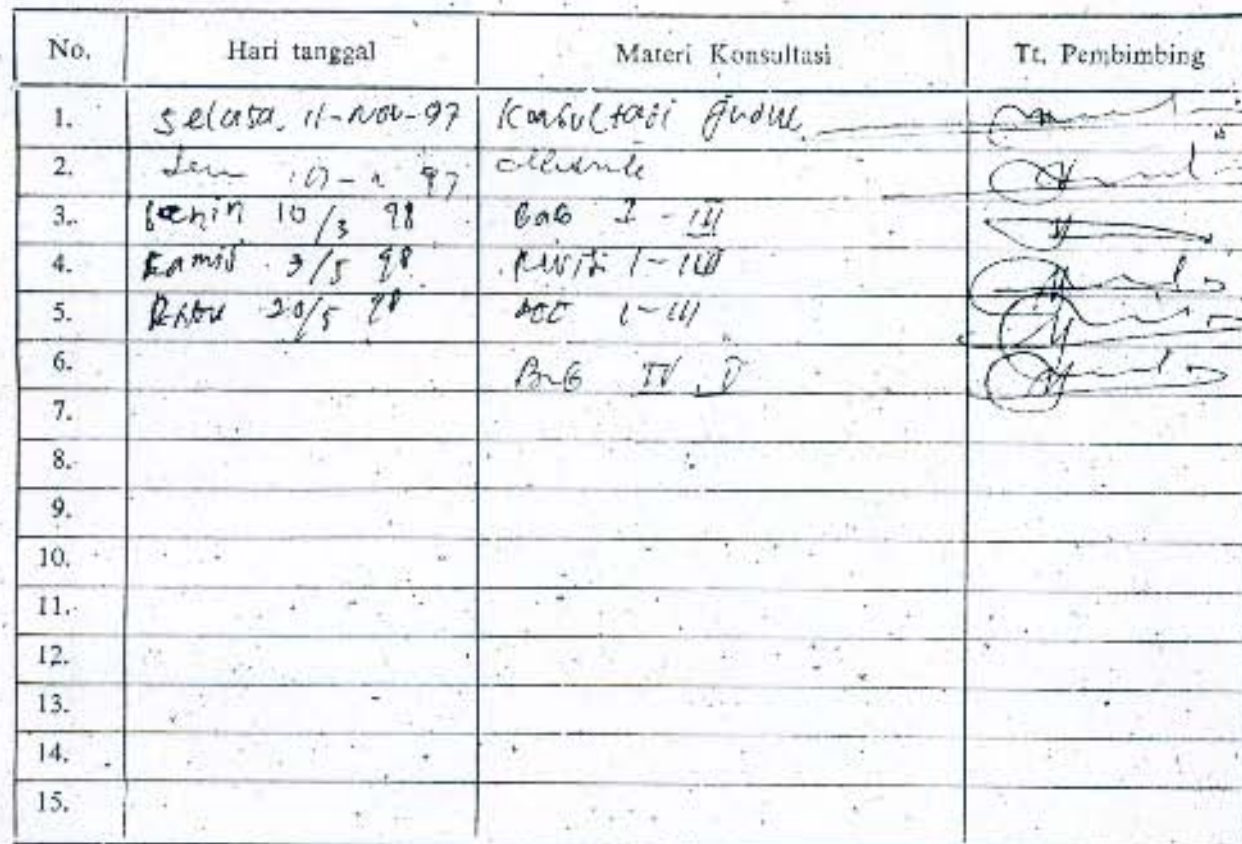 No. Hari tanggal Materi Konsultasi Tt. Pembimbing
1. Selasa, 11-Nov-97 Konsultasi Judul
2. 97
3. Senin 10/3 98 Bab I - III
4. Kamis 3/5 98 Revisi I - III
5. Rabu 20/5 98 ACC I - III
6. Bab IV V
7.
8.
9.
10.
11.
12.
13.
14.
15.